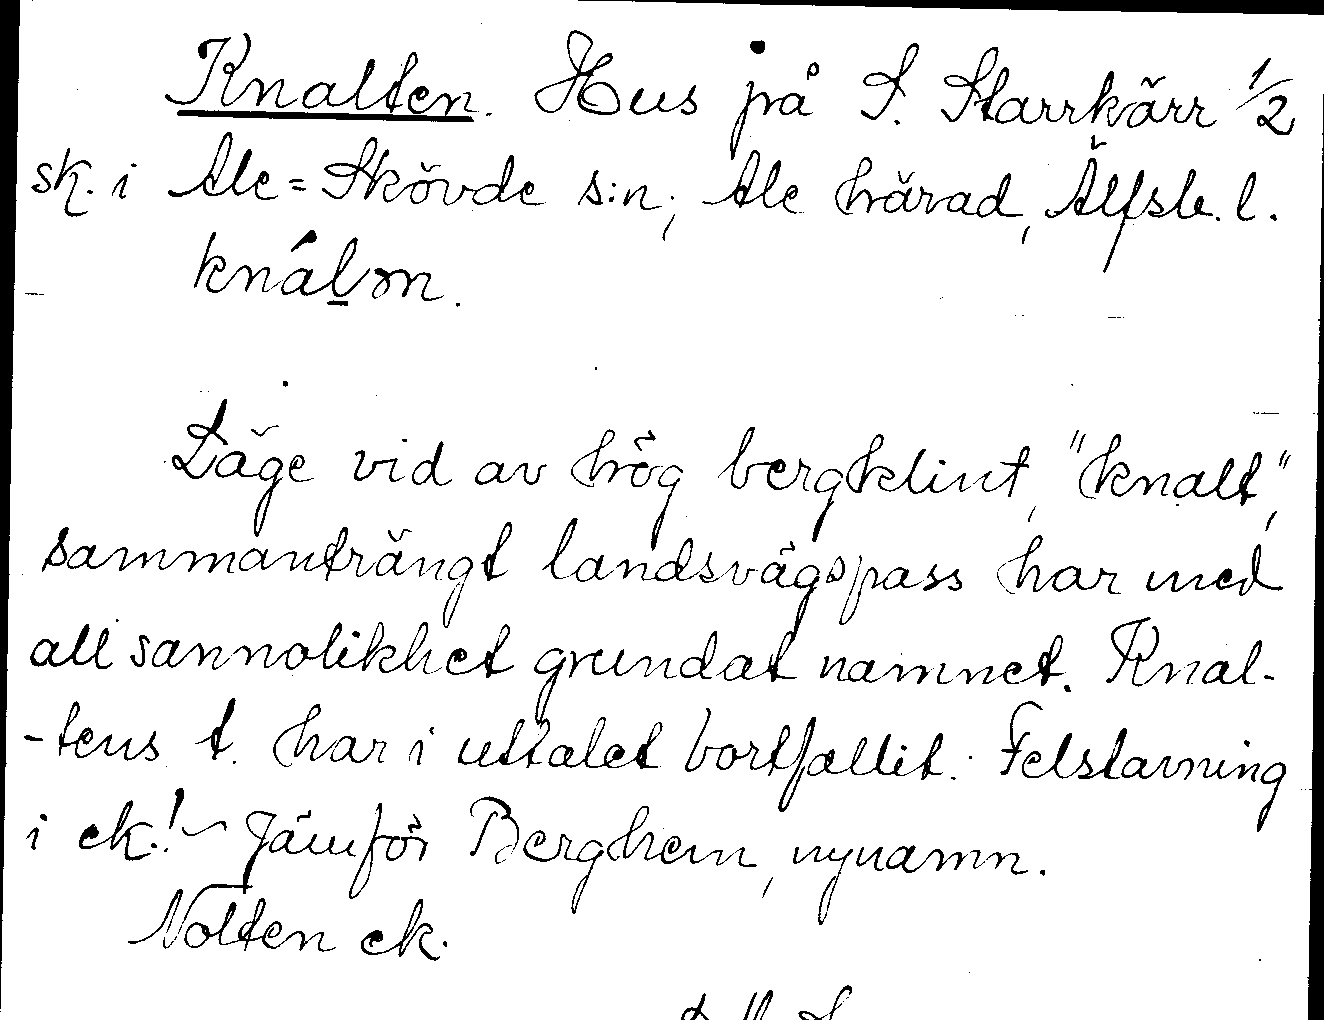 Knalten. Hus på S. Starrkärr 1/2
sk. i Ale=Skövde s:n, Ale härad, Älfsb. l.
knálən.
Läge vid av hög bergklint, "knalt",
sammanträngt landsvägspass har med
all sannolikhet grundat namnet. Knal-
-tens t. har i uttalet bortfallit. Felstavning
i ek.! ~ Jämför Berghem, nynamn.
Nolten ek.